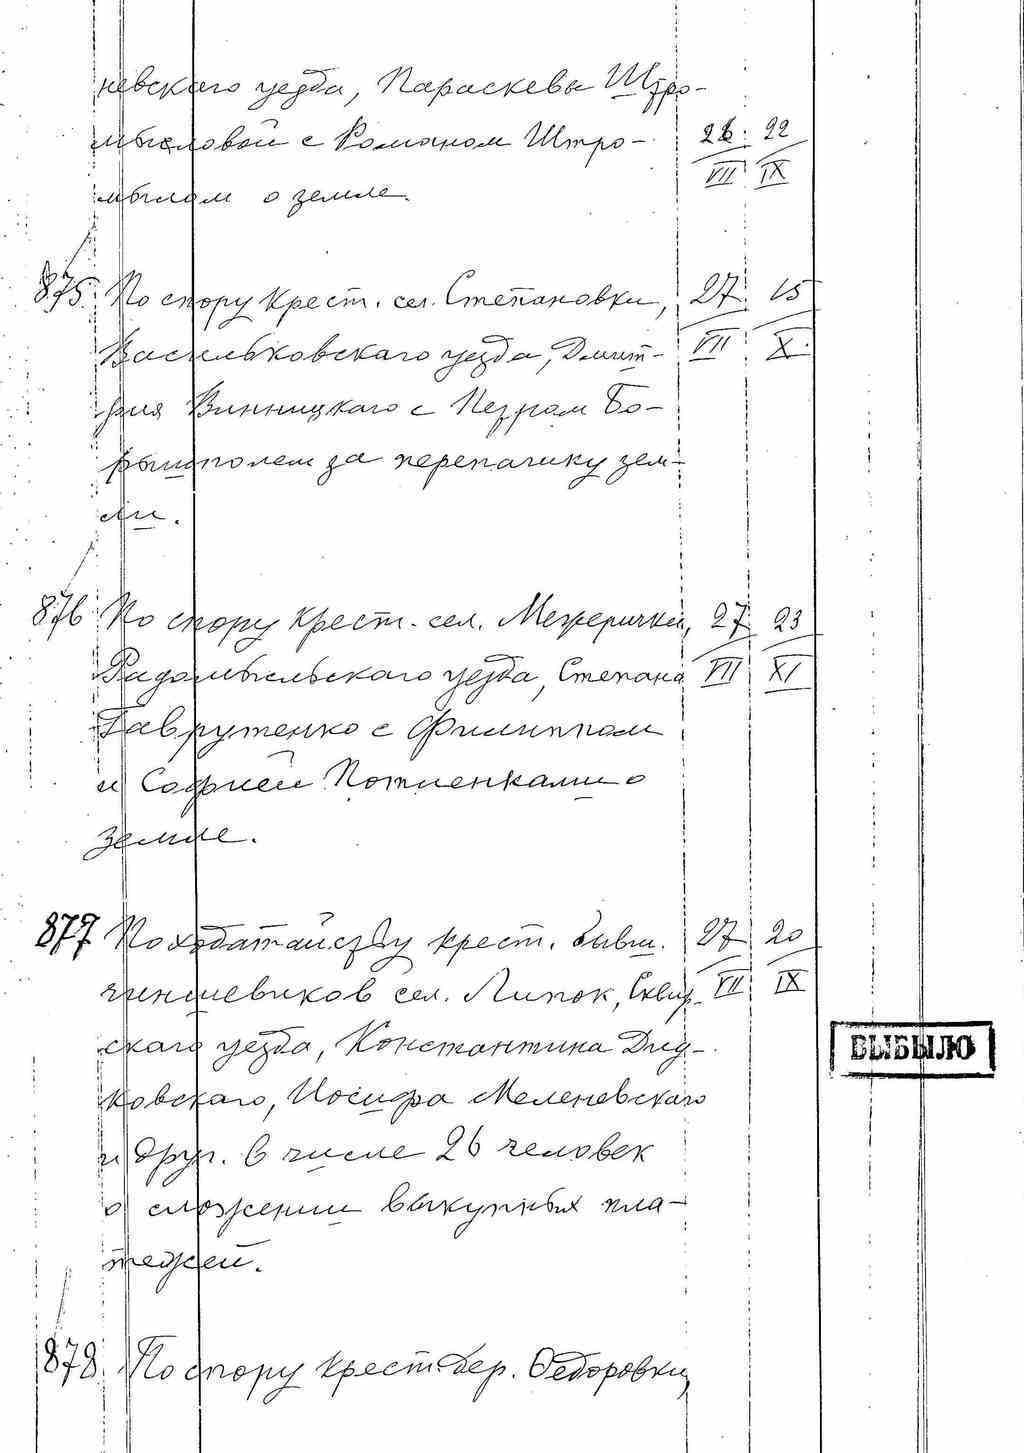 невского уезда, Параскевы Штро-
мысловой с Романом Штро- 26 22
мылом о земле. VII IX
875 По спору крест. сел. Степановки, 27 15
Васильковского уезда, Дмит- VII X
рия Винницкого с Петром Бо-
рышполем за перепашку зем-
ли.
876 По спору крест. сел. Межерички, 27 23
Радомысльского уезда, Степана VII XI
Гаврутенко с Филиппом
и Софией Потиенками о
земле.
877 По ходатайству крест. бывш. 27 20
чиншевиков сел. Липок, Сквир- VII IX
ского уезда, Константина Дид-
ковского, Иосифа Меленевского
и друг. в числе 26 человек
о сложении выкупных пла-
тежей.
ВЫБЫЛО
878 По спору крест. дер. Федоровки,